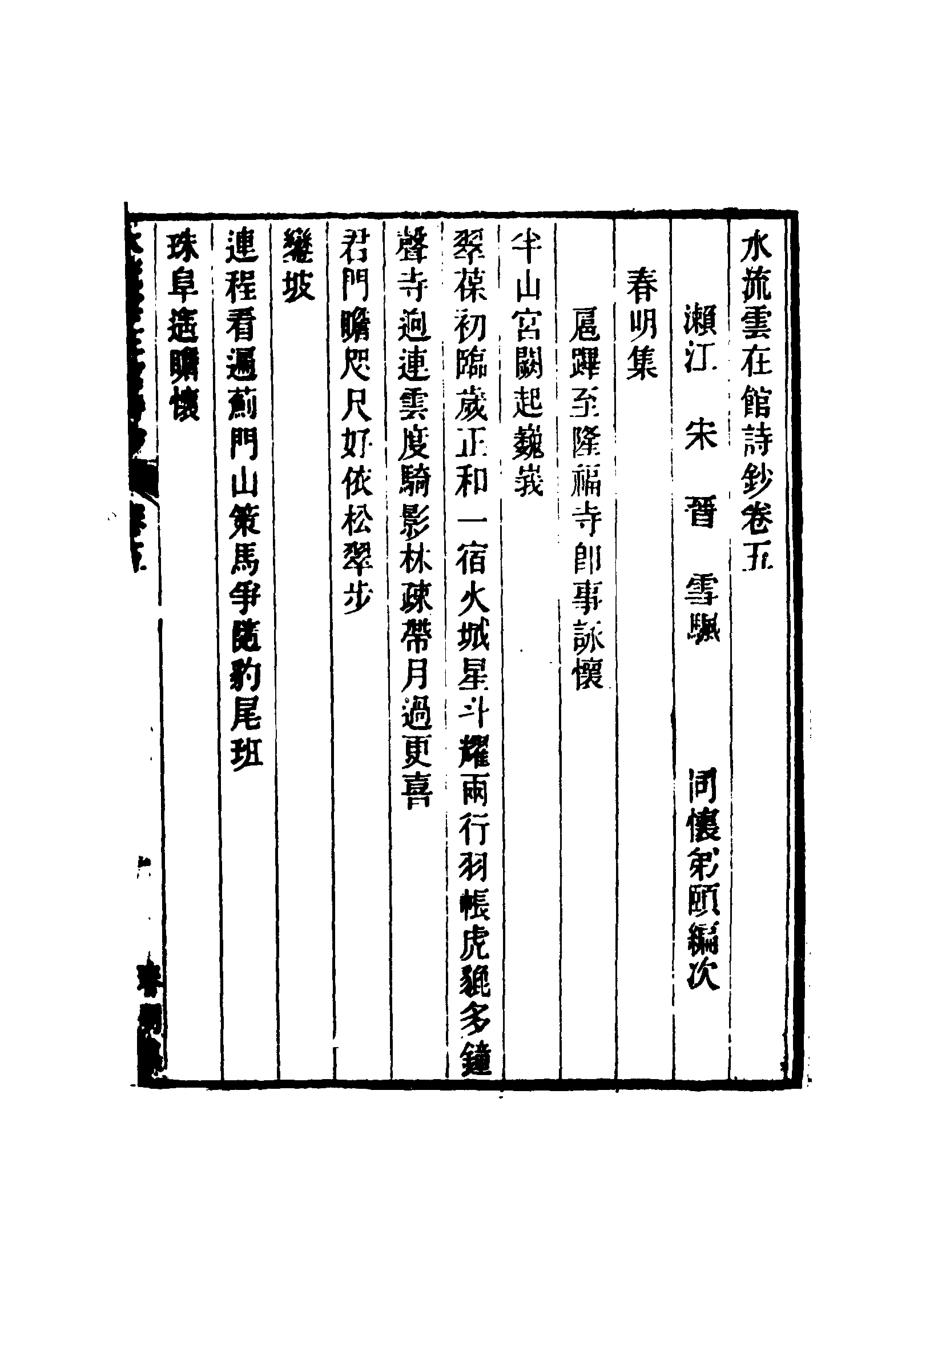 水流雲在館詩鈔卷五
瀨江 宋 晉 雪颿 同懷弟頤編次
春明集
扈蹕至隆福寺卽事詠懷
半山宮闕起巍峩
翠葆初臨歲正和一宿火城星斗耀兩行羽帳虎貔多鐘
聲寺迥連雲度騎影林疎帶月過更喜
君門瞻咫尺好依松翠步
鑾坡
連程看遍薊門山策馬爭隨豹尾班
珠阜遙瞻懷